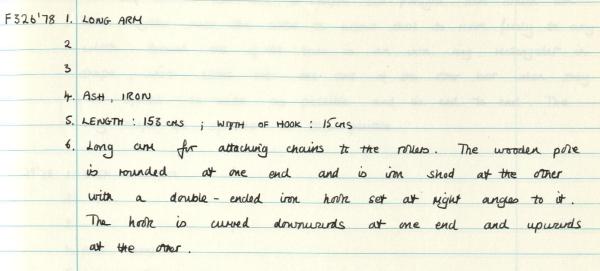 F326'78 1. LONG ARM
2
3
4. ASH, IRON
5. LENGTH : 153 cms ; WIDTH OF HOOK : 15 cms
6. Long arm for attaching chains to the rollers. The wooden pole
is rounded at one end and is iron shod at the other
with a double-ended iron hook set at right angles to it.
The hook is curved downwards at one end and upwards
at the other.